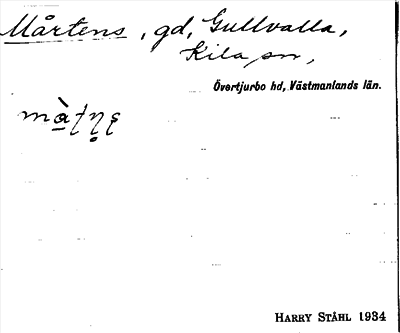 Mårtens, gd, Gullvalla,
Kila sn,
Övertjurbo hd, Västmanlands län.
HARRY STÅHL 1934